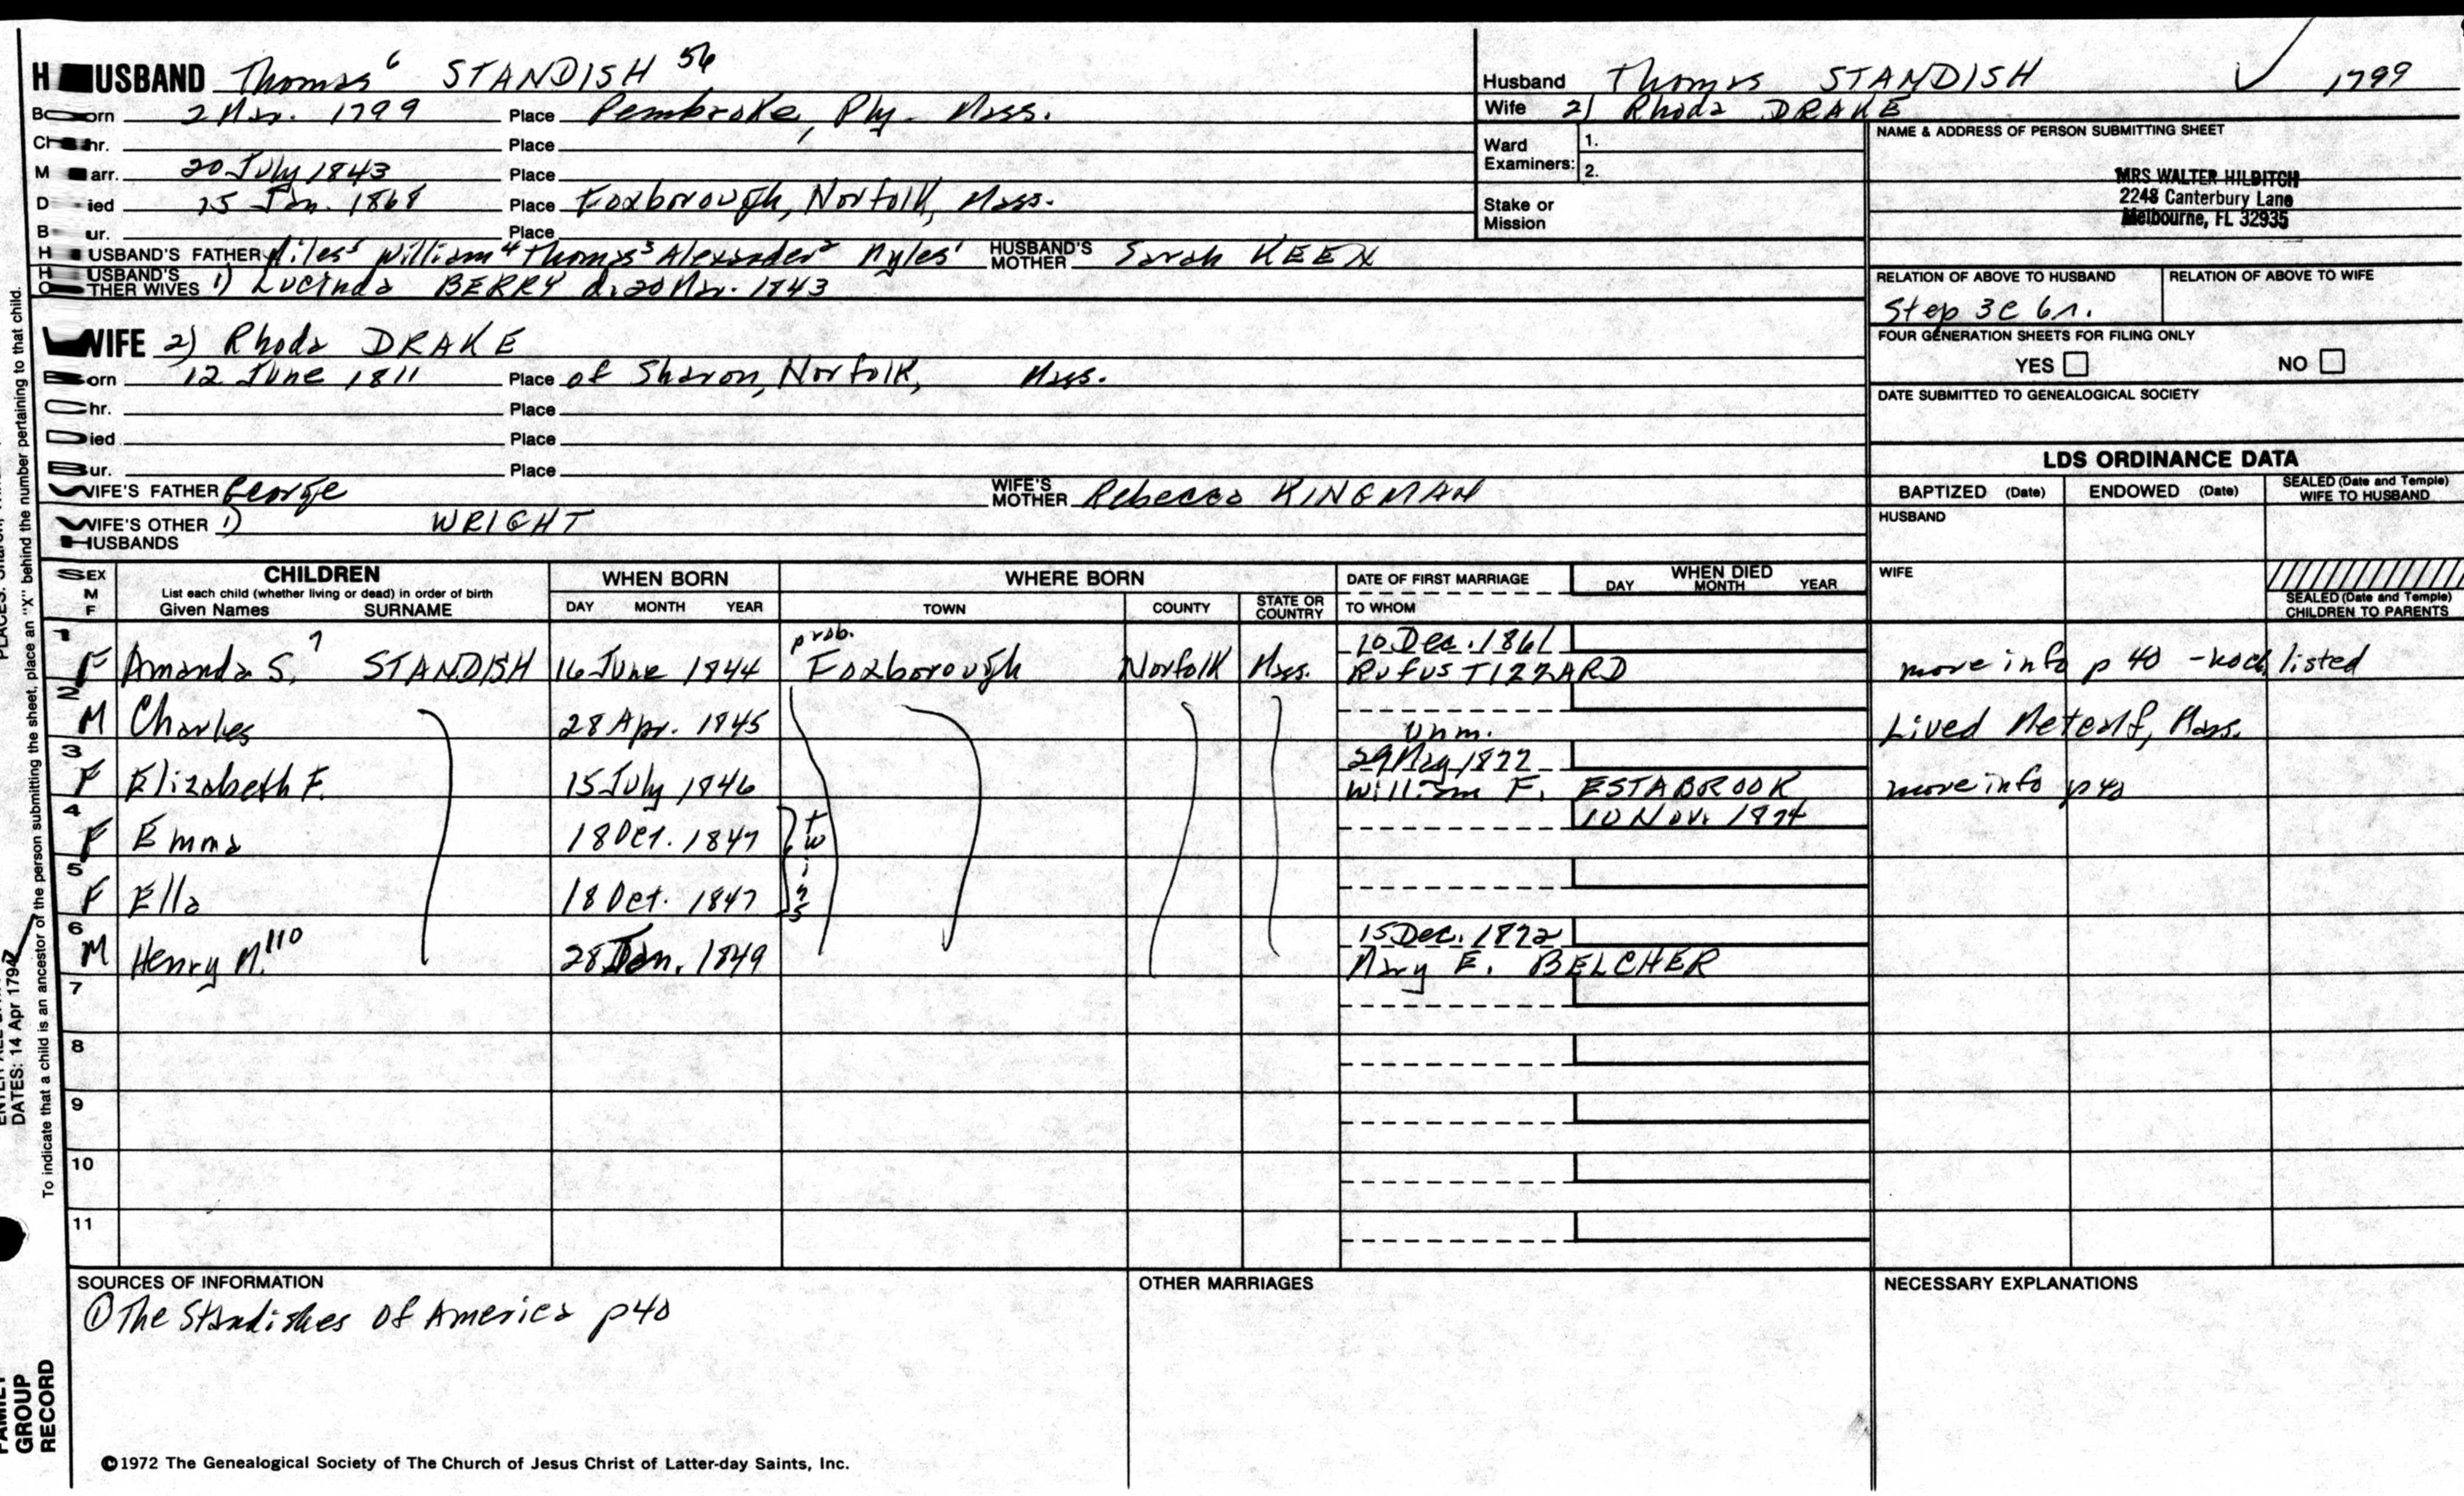 HUSBAND Thomas 6 STANDISH 56
Born 2 Mar. 1799 Place Pembroke, Ply. Mass.
Chr. Place
Marr. 20 July 1843 Place
Died Jan. 1868 Place Foxborough, Norfolk, Mass.
Bur. Place
HUSBAND'S FATHER Miles5 William4 Thomas3 Alexander2 Myles1 HUSBAND'S MOTHER Sarah KEEN
HUSBAND'S OTHER WIVES 1) Lucinda BERRY d. 20 Mar. 1843
Husband Thomas STANDISH ✓ 1799
Wife 2) Rhoda DRAKE
Ward Examiners: 1.
2.
Stake or Mission
NAME & ADDRESS OF PERSON SUBMITTING SHEET
MRS WALTER HILDITCH
2248 Canterbury Lane
Melbourne, FL 32935
RELATION OF ABOVE TO HUSBAND RELATION OF ABOVE TO WIFE
Step 3c 6r.
FOUR GENERATION SHEETS FOR FILING ONLY
YES NO
DATE SUBMITTED TO GENEALOGICAL SOCIETY
WIFE 2) Rhoda DRAKE
Born 12 June 1811 Place of Sharon, Norfolk, Mass.
Chr. Place
Died Place
Bur. Place
WIFE'S FATHER George WIFE'S MOTHER Rebecca KINGMAN
WIFE'S OTHER HUSBANDS 1) WRIGHT
LDS ORDINANCE DATA
BAPTIZED (Date) ENDOWED (Date) SEALED (Date and Temple) WIFE TO HUSBAND
HUSBAND
WIFE
SEALED (Date and Temple) CHILDREN TO PARENTS
SEX M F CHILDREN WHEN BORN WHERE BORN DATE OF FIRST MARRIAGE WHEN DIED
List each child (whether living or dead) in order of birth
Given Names SURNAME DAY MONTH YEAR TOWN COUNTY STATE OR COUNTRY TO WHOM DAY MONTH YEAR
1 F Amanda S. 7 STANDISH 16 June 1844 prob. Foxborough Norfolk Mass. 10 Dec. 1861
Rufus TIZZARD more info p 40 - listed
2 M Charles 28 Apr. 1845 unm. Lived Metcalf, Mass.
3 F Elizabeth F. 15 July 1846 29 May 1872
William F. ESTABROOK more info p40
4 F Emma 18 Oct. 1847 twins 10 Nov. 1874
5 F Ella 18 Oct. 1847
6 M Henry M. 110 28 Jan. 1849 15 Dec. 1872
Mary E. BELCHER
7
8
9
10
11
SOURCES OF INFORMATION
① The Standishes of America p40
OTHER MARRIAGES
NECESSARY EXPLANATIONS
©1972 The Genealogical Society of The Church of Jesus Christ of Latter-day Saints, Inc.
To indicate that a child is an ancestor of the person submitting the sheet, place an "X" behind the number pertaining to that child.
DATES: 14 Apr 1794
FAMILY
GROUP
RECORD